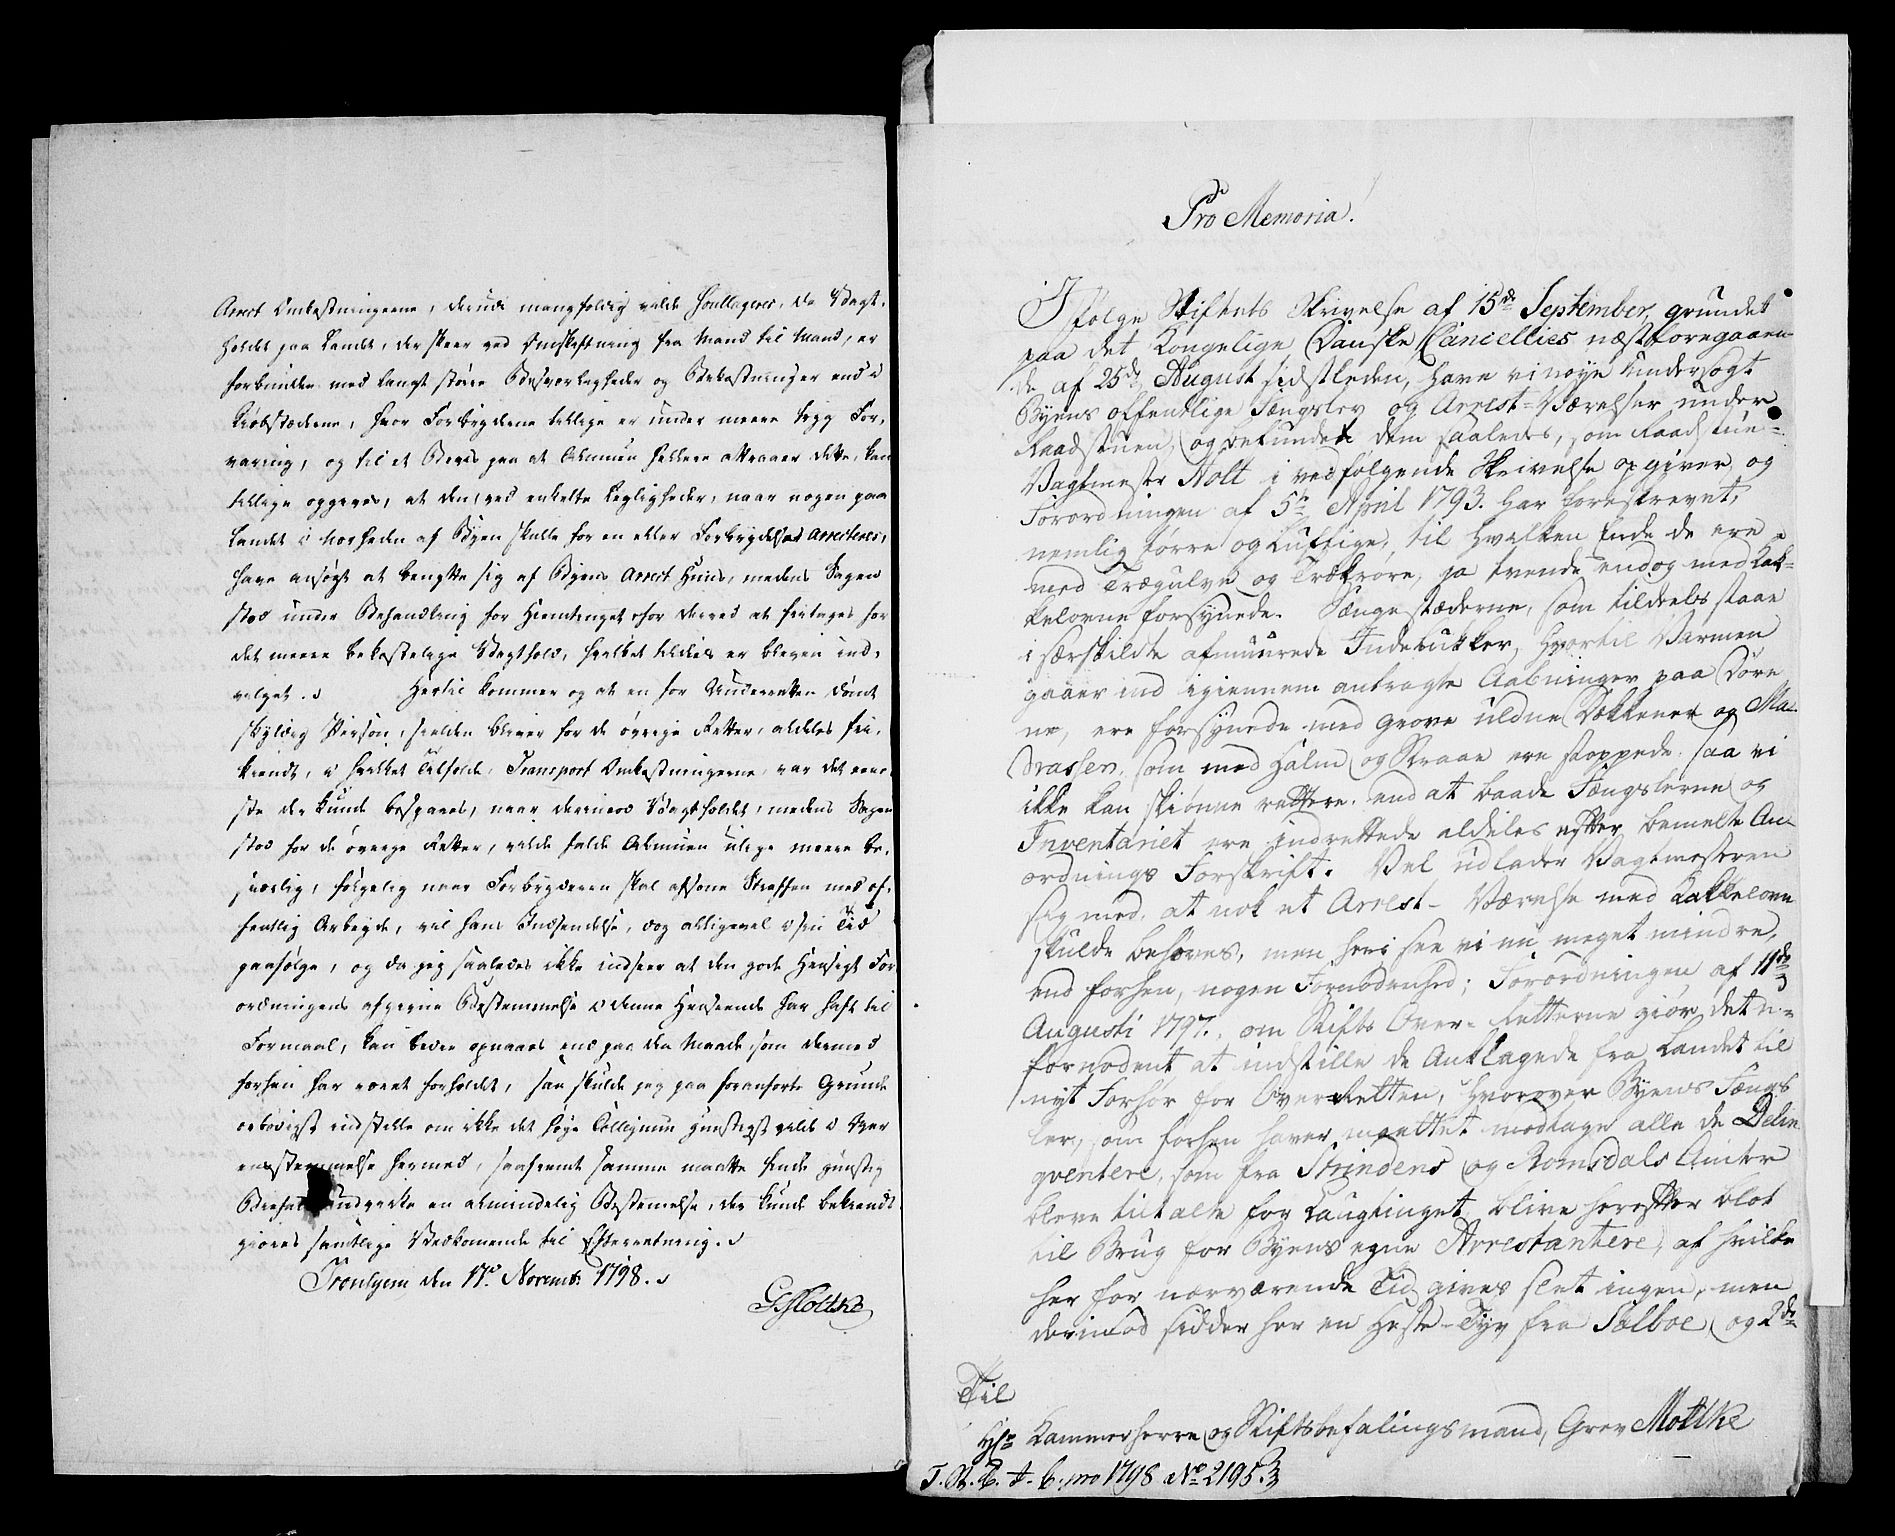 Arrest Omkostningerne, derudi mangfoldig vilde foraarsages, da Vagt-
holdet paa Landet, der skeer ved Omskiftning fra Mand til Mand, er
forbunden med langt større Besværligheder og Bekostninger end i
Kiøbstæderne, hvor Forbryderne tillige er under meere tryg For-
varing, og til et Beviis paa at Almuen hellere attraaer dette, kan
tillige opgives, at den, ved enkelte Leyligheder, naar nogen paa
Landet i Nærheden af Byen skulle for en eller Forbrydelse Arresteres,
have ansøgt at benytte sig af Byens Arrest Huus, medens Sagen
stod under Behandling for Hiemtinget for derved at fritages for
det meere bekostelige Vagthold, hvilket saaledes er bleven ind-
vilget. Hertil kommer og at en for Underretten dømt
skyldig Person, sielden bliver for de øvrige Retter, aldeles fri-
kiendt, i hvilket Tilfælde, Transport Omkostningerne, var det eene-
ste der kunde bespares, naar derimod Vagtholdet, medens Sagen
stod for de øvrige Retter, vilde falde Almuen ulige meere be-
sværlig, følgelig naar Forbryderen skal afsone Straffen med of-
fentlig Arbeyde, vil hans Indsendelse, dog alligevel i sin Tid
paafølge, og da jeg saaledes ikke indseer at den gode Hensigt For-
ordningens afgivne Bestemmelse i denne Henseende har haft til
Formaal, kan bedre opnaaes end paa den Maade som dermed
forhen har været forholdet, saa skulde jeg paa foranførte Grunde
ærbødigst indstille om ikke det høye Collegium gunstigst vilde i Over-
eensstemmelse hermed, saafremt samme maatte finde gunstig
Bifald udvirke en almindelig Bestemmelse, der kunde bekiendt-
giøres samtlige Vedkommende til Efterretning.
Tronhjem den 17de Novembr 1798.
G Moltke

Pro Memoria!
I følge Stiftets Skrivelse af 15de September, grundet
paa det Kongelige Danske Cancellies næstforegaaen-
de af 25de August sidstleden, have vi nøye undersøgt
Byens offentlige Fængsler og Arrest-Værelser under
Raadstuen, og befunden dem saaledes, som Raadstue-
Vagtmester Nolt i vedfølgende Skrivelse opgiver, og
Forordningen af 5te April 1793. har foreskrevet,
nemlig tørre og luftige, til hvilken Ende de ere
med Trægulve og Trækrøre, ja trende endog med Kak-
kelovne forsynede. Sengestæderne, som tildeels staae
i særskildte afmuurede Indelukker, hvortil Varmen
gaaer ind igiennem anbragte Aabninger paa Døre-
ne, ere forsynede med grove uldne Dækkener og Ma-
drasser, som med Halm og Straae ere stoppede. saa vi
ikke kan skiønne rettere, end at baade Fængslerne og
Inventariet ere indrettede aldeles efter bemelte An-
ordnings Forskrift. Vel udlader Vagtmesteren
sig med, at nok et Arrest-Værelse med Kakkelovn
skulde behøves, men heri see vi nu meget mindre,
end forhen, nogen Fornødenhed; Forordningen af 11de
Augusti 1797. om Stifts Over-Retterne giør det u-
fornødent at indstille de Anklagede fra Landet til
nyt Forhør for Overretten, hvorover Byens Fængs-
ler, som forhen haver maattet modtage alle de Delin-
qventere, som fra Strindens og Romsdals Amter
bleve tiltalte for Laugtinget, blive herefter blot
til Brug for Byens egne Arrestantere, af hvilke
her for nærværende Tid gives slet ingen, men
derimod sidder her en Heste-Tyv fra Sælboe, og 2de
Til
Hr Kammerherre og Stiftsbefalingsmand, Grev Moltke
T. St. C. J. b. pro 1798 No 2195.